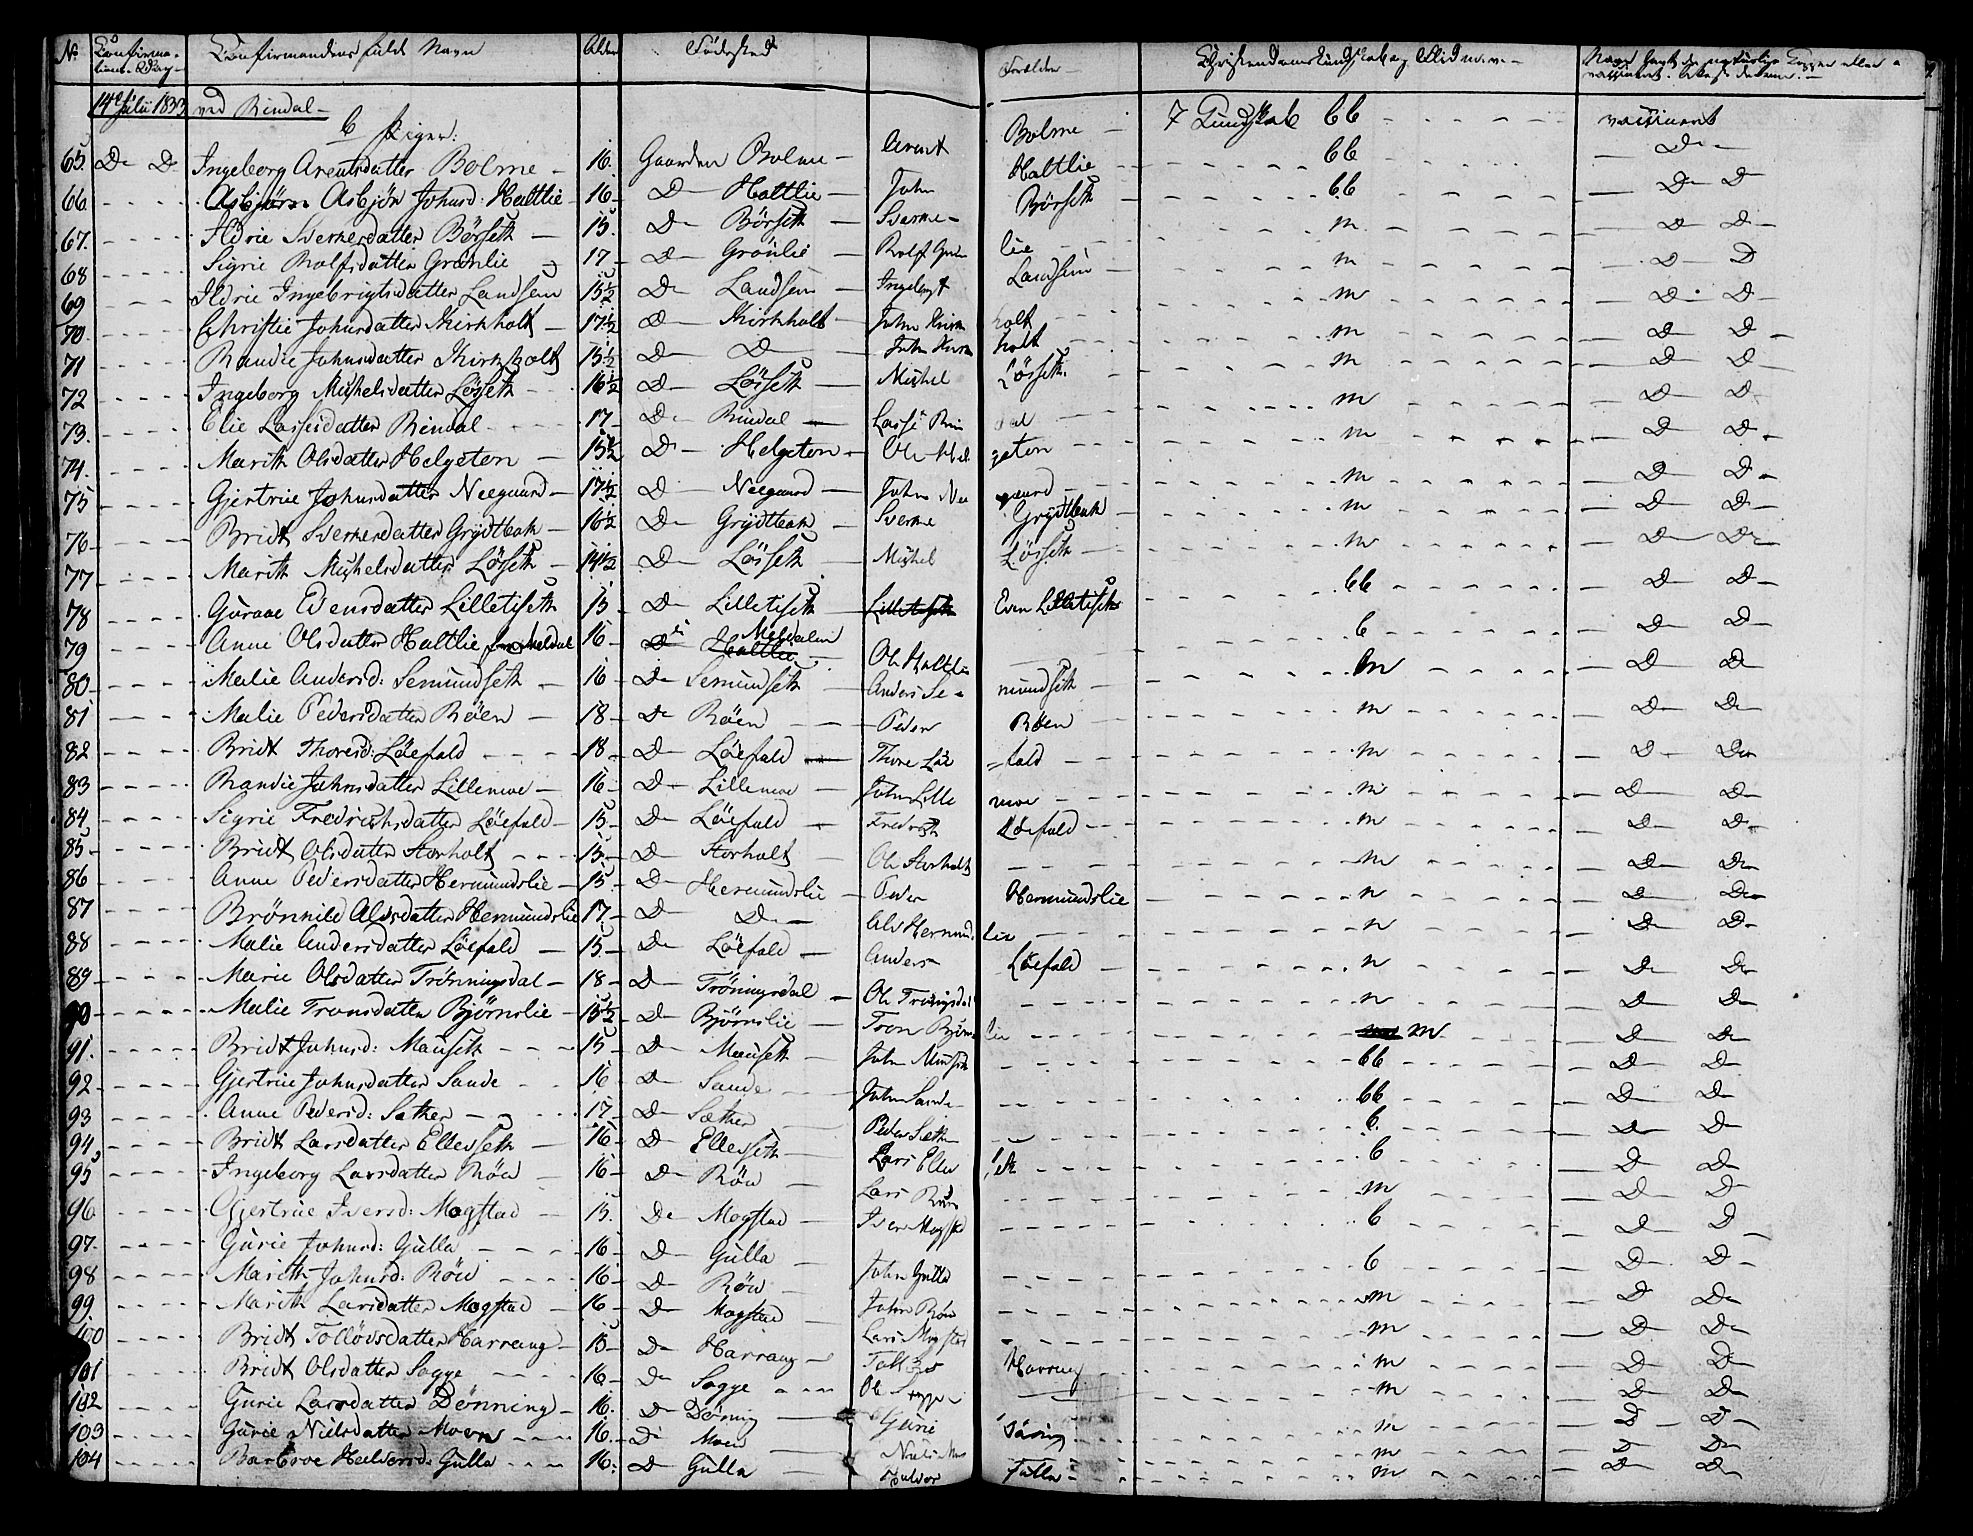 No Confirma- Confirmandens fulde Navn Alder Fødested Forældre Christendomskundskab og Flid m. v. Naar havt de naturlige Kopper eller
tions-Dag vaccineret
14de Julii 1833 ved Rindal
b Piger: 7 Kundskab bb vaccineret
65 D D Ingeborg Arentsdatter Bolme 16 Gaarden Bolme Arent Bolme bb D
66 Asbjørn Johnsd: Haltlie 16 D Haltlie John Haltlie bb D D
67 Ildrie Sverkesdatter Børseth 15 D Børseth Sverke Børseth m D D
68 Sigrie Rolfsdatter Grønlie 17 D Grønlie Rolf Grønlie m D D
69 Ildrie Ingebrigtsdatter Landsem 15½ D Landsem Ingebrgt Landsem m D D
70 Christie Johnsdatter Kirkholt 17½ D Kirkholt John Kirkholt m D D
71 Randie Johnsdatter Kirkholt 15½ D D John Kirkholt m D D
72 Ingeborg Mikkelsdatter Løseth 16½ D Løseth Mikkel Løseth m D D
73 Elie Lassesdatter Rindal 17 D Rindal Lasse Rindal m D D
74 Marith Olsdatter Helgeton 15½ D Helgeton Ole Helgeton m D D
75 Gjertrue Johnsdatter Neegaard 17½ D Neegaard John Neegaard m D D
76 Bridt Sverkesdatter Grytbak 16½ D Grytbak Sverke Grytbak m D D
77 Marith Mikkelsdatter Løseth 14½ D Løseth Mikkel Løseth bb D D
78 Guraae Evensdatter Lilletiseth 15 D Lilletiseth Even Lilletiseth b D D
79 Anne Olsdatter Haltlie fra Meldal 16 i Meldalen Ole Haltlie m D D
80 Malie Andersd: Semundseth 16 D Semundseth Anders Semundseth m D D
81 Malie Pedersdatter Røen 18 D Røen Peder Røen m D D
82 Bridt Thoresd: Løefald 18 D Løefald Thore Løefald m D D
83 Randie Johnsdatter Lillemoe 16 D Lillemoe John Lillemoe m D D
84 Sigrie Fredrichsdatter Løefald 15 D Løefald Fredrich Løefald m D D
85 Bridt Olsdatter Storholt 15 D Storholt Ole Storholt m D D
86 Anne Pedersdatter Hermundslie 15 D Hermundslie Peder Hermundslie n D D
87 Brønnild Alvsdatter Hermundslie 17 D D Alv Hermundslie n D D
88 Malie Andersdatter Løefald 15 D Løefald Anders Løefald n D D
89 Marie Olsdatter Trønningsdal 18 D Trøningsdal Ole Trøningsdal n D D
90 Malie Tronsdatter Bjørnslie 15½ D Bjørnslie Tron Bjørnslie m D D
91 Bridt Johnsd: Mauseth 15 D Mauseth John Mauseth bb D D
92 Gjertrue Johnsdatter Sande 16 D Sande John Sande bb D D
93 Anne Pedersd: Sæther 17 D Sæther Peder Sæther b D D
94 Bridt Larsdatter Ellevseth 16 D Ellevseth Lars Ellevseth b D D
95 Ingeborg Larsdatter Røen 16 D Røen Lars Røen m D D
96 Gjertrue Iversd: Mogstad 15 D Mogstad Iver Mogstad b D D
97 Gurie Johnsd: Gulla 16 D Gulla John Gulla b D D
98 Marith Johnsd: Røen 16 D Røen John Røen m D D
99 Marith Larsdatter Mogstad 16 D Mogstad Lars Mogstad m D D
100 Bridt Tolløvsdatter Harrang 15 D Harrang Harrang m D D
101 Bridt Olsdatter Sogge 16 D Sogge Ole Sogge m D D
102 Gurie Larsdatter Dønning 16 D Dønning Gurie m D D
103 Gurie Nielsdatter Moen 16 D Moen Niels m D D
104 Barbroe Halvorsd: Gulla 16 D Gulla Halvor Gulla m D D